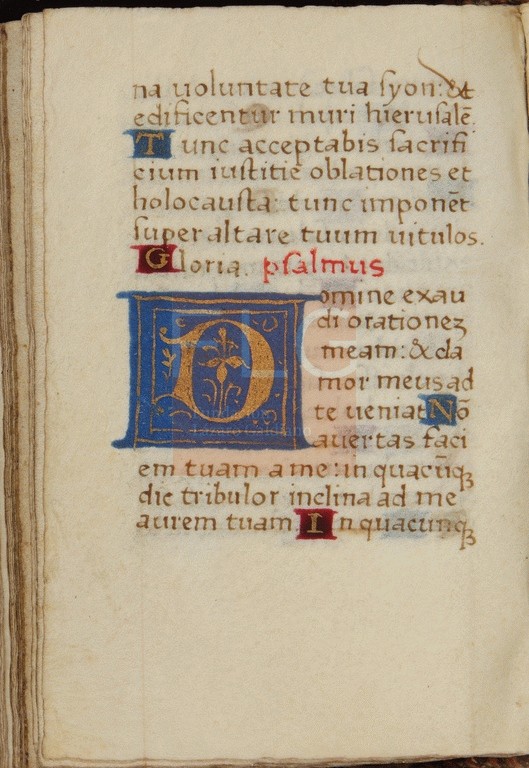 na uoluntate tua syon: &t
edificentur muri hierusalē.
Tunc acceptabis sacrifi
cium iustitie oblationes et
holocausta: tunc imponēt
super altare tuum uitulos.
Gloria. psalmus
Domine exau
di orationeʒ
meam: & cla
mor meus ad
te ueniat Nō
auertas faci
em tuam a me: in quacūqꝫ
die tribulor inclina ad me
aurem tuam. In quacunqꝫ
FLG